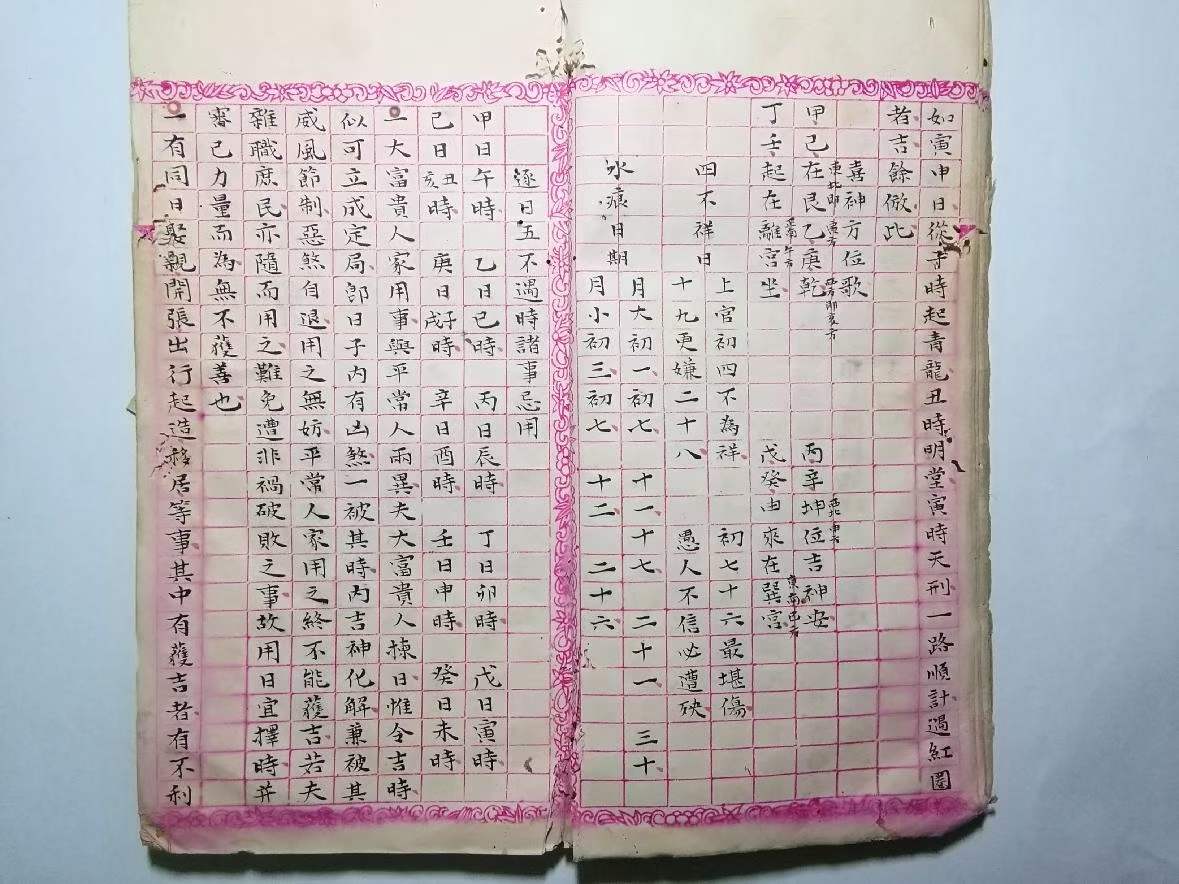 如寅申日從子時起青龍丑時明堂寅時天刑一路順計過紅圈
者吉餘倣此
喜神方位歌
甲己在艮東北即寅方乙庚乾西北即亥方　丙辛坤位吉神安
丁壬起在離宮坐正南午方　戊癸由來在巽宮東南巳方
四不祥日
上官初四不為祥　初七十六最堪傷
十九更嫌二十八　愚人不信必遭殃
冰痕日期
月大初一初七　十一十七　二十一　三十
月小初三初七　十二　二十六
逐日五不遇時諸事忌用
甲日午時　乙日巳時　丙日辰時　丁日卯時　戊日寅時
己日丑亥時　庚日子戌時　辛日酉時　壬日申時　癸日未時
一大富貴人家用事與平常人兩異夫大富貴人揀日惟令吉時
似可立成定局即日子內有凶煞一被其時丙吉神化解兼被其
威風節制惡煞自退用之無妨平常人家用之終不能獲吉若夫
雜職庶民亦隨而用之難免遭非禍破敗之事故用日宜擇時并
審己力量而為無不獲善也
一有同日娶親開張出行起造移居等事其中有獲吉者有不利